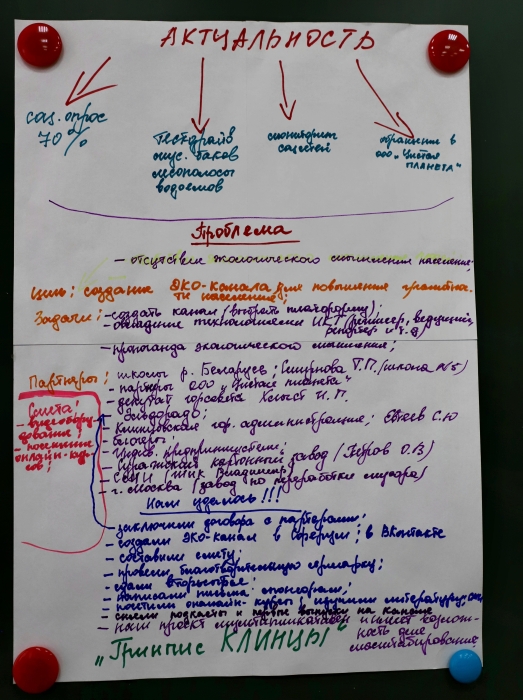 АКТУАЛЬНОСТЬ
соц. опрос
70%
Тестдрайв
мус. баков
лесополосы
водоемов
мониторинг
соцсетей
обращение в
ООО „Чистая
ПЛАНЕТА"
Проблема
- отсутствие экологического мышления населения;
Цель: создание ЭКО-канала для повышения грамотнос
ти населения;
Задачи: - создать канал (выбрать платформу);
- овладение технологиями ИКТ (режиссер, ведущий,
репортер и т.д)
- пропаганда экологического мышления;
Партнеры: - школы р. Беларусь; Смирнова Т.П. (школа №5)
- партнеры ООО „Чистая планета"
- депутат горсовета И.П.
- Эльдорадо;
- Клинцовская гор. администрация; Евтеев С.Ю
- блогеры;
- индив. предприниматели;
- Суражский картонный завод (Петров О.В)
- СМИ (Владимир)
- г. Москва (завод по переработки мусора)
Смета:
- видеообору
дование;
- посещение
онлайн-кур
сов;
Нам удалось!!!
- заключили договора с партерами;
- создали ЭКО-канал в ; в ВКонтакте
- составили смету;
- провели благотворительную ярмарку;
- сдали вторсырье;
- написали письма спонсорам;
- посетили онлайн-курсы и изучили литературу;
- сняли подкасты и первые выпуски на канале
- наш проект мультипликативен и имеет возмож-
ность для
масштабирования
„Гринпис КЛИНЦЫ"